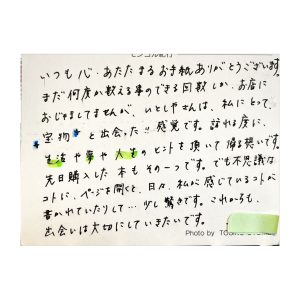 いつも心・あたたまるお手紙ありがとうございます。
まだ何度か数える事のできる回数しか、お店に
おじゃましてませんが、いとしやさんは、私にとって、
宝物と出会った!! 感覚です。訪れる度に、
生活や事や人生のヒントを頂いて帰る想いです。
先日購入した本もその一つです。でも不思議な
コトに、ページを開くと、日々、私が感じているコトが
書かれていたりして…少し驚きです。これからも、
出会いは大切にしていきたいです。
Photo by